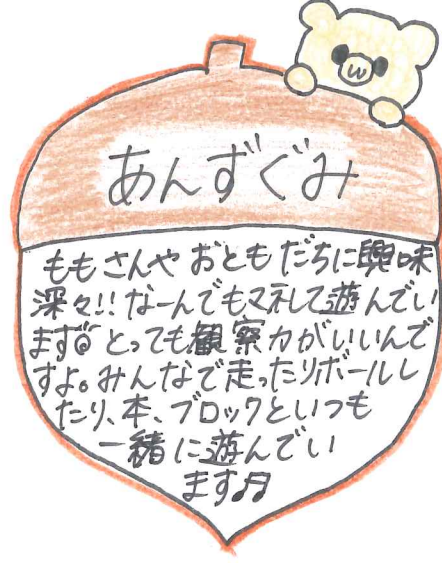 あんずぐみ
ももさんや おともだちに興味
深々!! なーんでもマネして遊んでい
ます◎ とっても観察力がいいんで
すよ。みんなで走ったりボールし
たり、本、ブロックといつも
一緒に遊んでい
ます♫